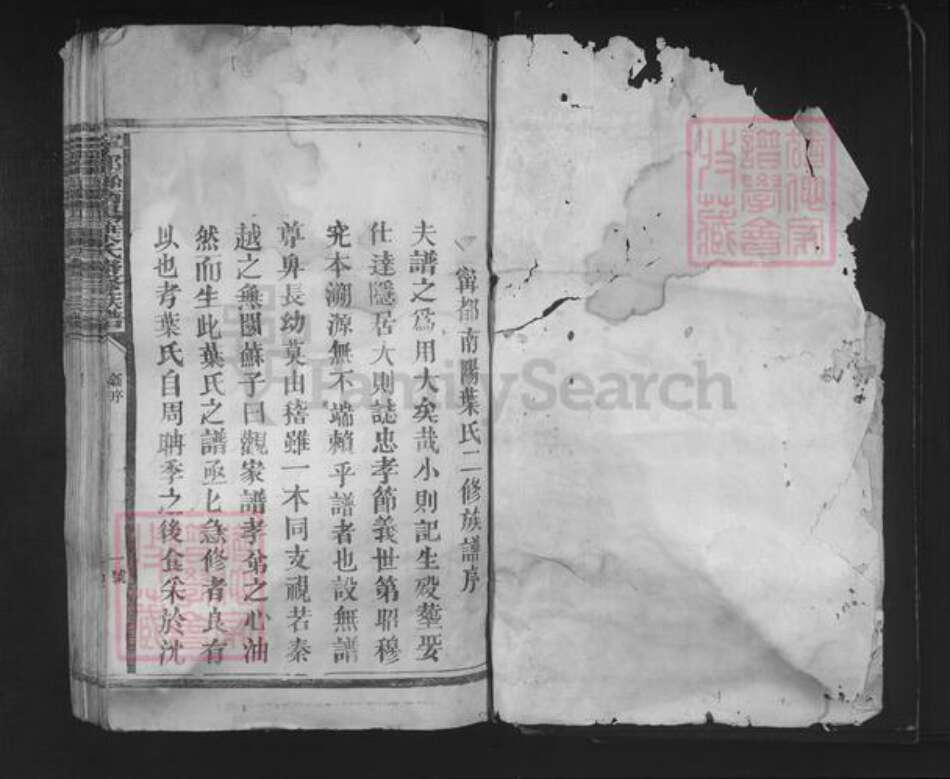 甯都南陽葉氏二修族譜序
夫譜之為用大矣哉小則記生殁塟娶
仕達隱居大則誌忠孝節義世第昭穆
究本溯源無不端賴乎譜者也設無譜
尊卑長幼莫由稽雖一本同支視若秦
越之無關蘇子曰觀家譜孝弟之心油
然而生此葉氏之譜亟亟急修者良有
以也考葉氏自周聃季之後食采於沈
FamilySearch
譜學會
收藏